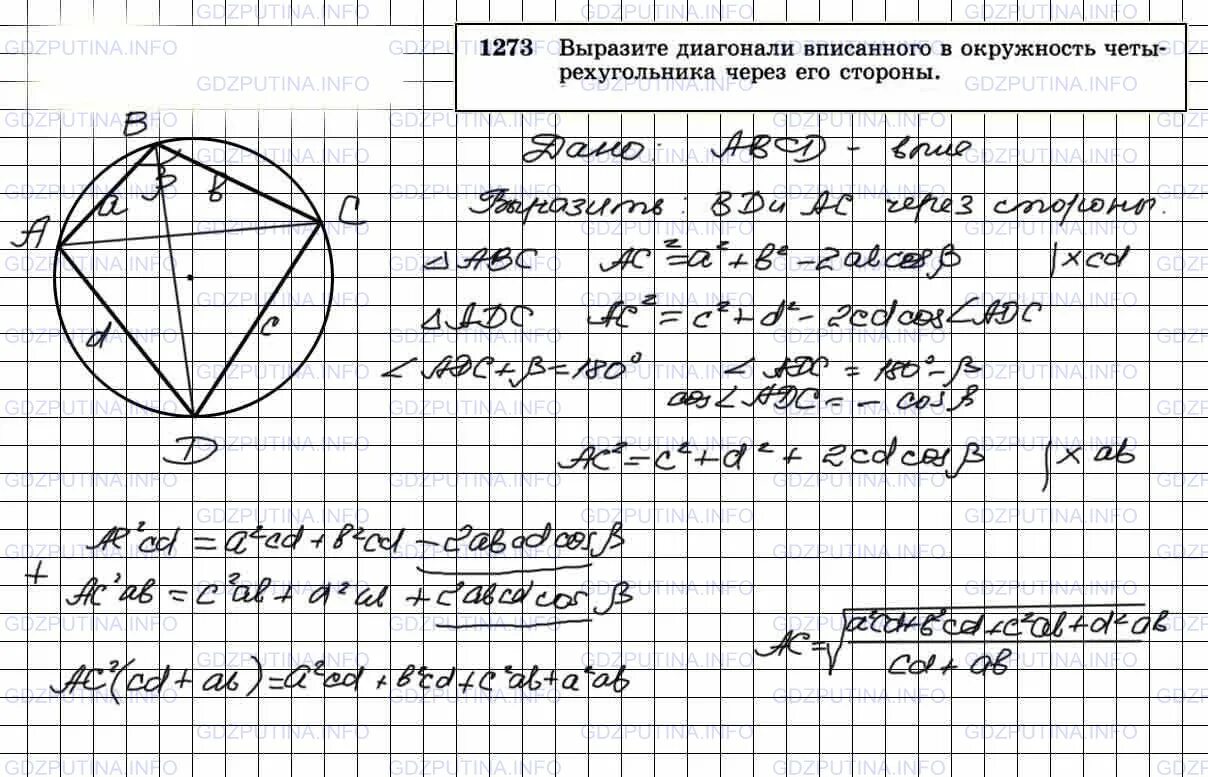 1273 Выразите диагонали вписанного в окружность четы-
рехугольника через его стороны.
B
β
a
b
A
C
d
c
D
Дано: ABCD - впис
Выразить: BD и AC через стороны.
△ABC AC² = a² + b² - 2ab cos β | × cd
△ADC AC² = c² + d² - 2cd cos∠ADC
∠ADC + β = 180° ∠ADC = 180° - β
cos∠ADC = - cos β
AC² = c² + d² + 2cd cos β | × ab
AC²cd = a²cd + b²cd - 2abcd cos β
+
AC²ab = c²ab + d²ab + 2abcd cos β
AC²(cd + ab) = a²cd + b²cd + c²ab + a²ab
AC = √ a²cd + b²cd + c²ab + d²ab
cd + ab
GDZPUTINA.INFO